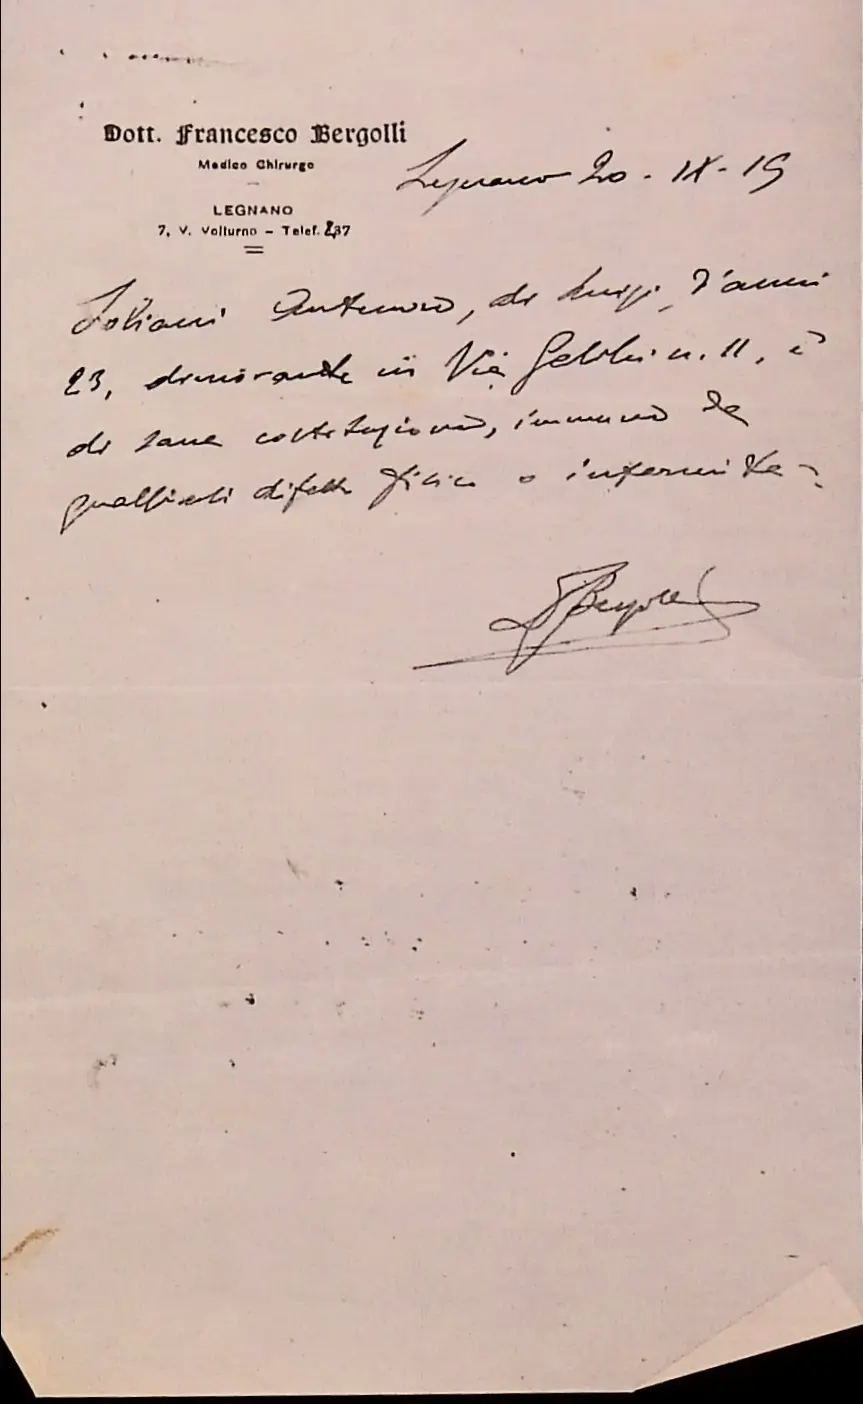 Dott. Francesco Bergolli
Medico Chirurgo
LEGNANO
7, V. Volturno – Telef. 237
Legnano 20 - IX - 19
Soliani Antenore, di Luigi, d'anni
23, dimorante in Via n. 11, è
di sana costituzione, immune da
qualsiasi difetto fisico o infermità.
Bergolli